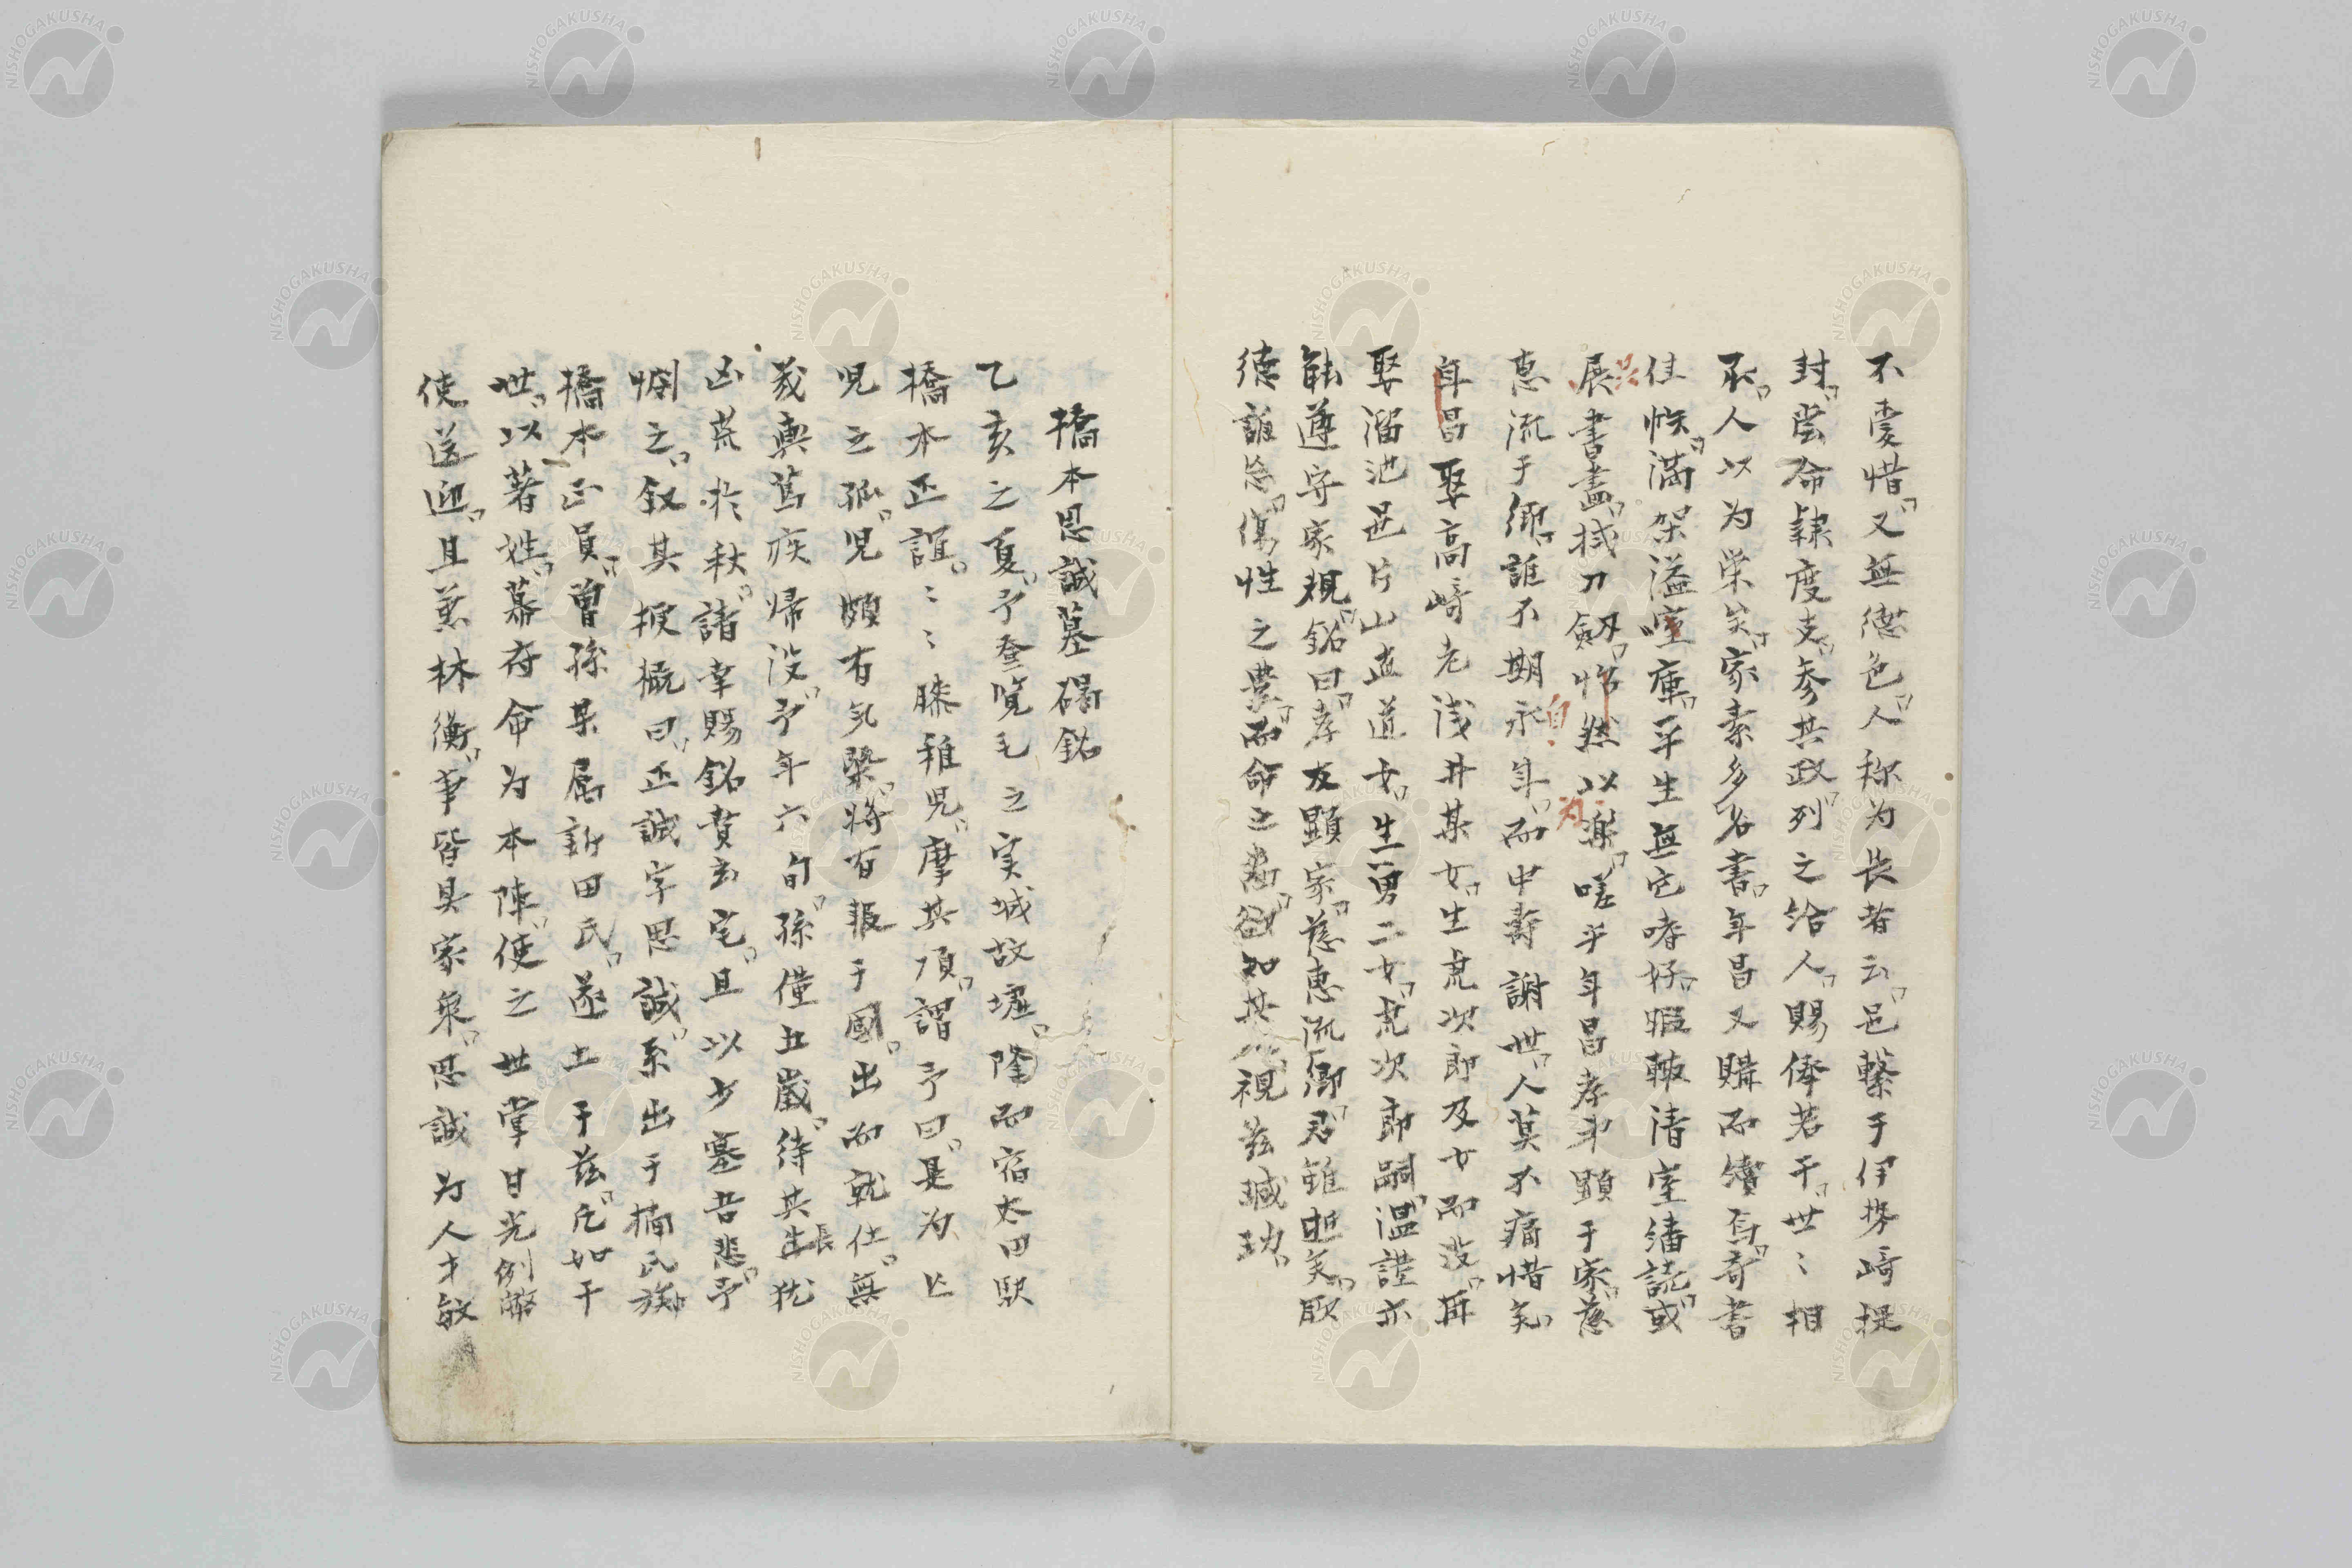 不愛惜又無德色人称为長者云邑繫于伊勢崎提
封嘗命隷度支参其政列之給人賜俸若干世〻相
承人以为栄矣家素多名書年昌又購而續焉奇書
佳帙滿架溢室庫平生無它嗜好暇輙清室繙読或
展書畫拭刀劔怡然以楽嗟乎年昌孝弟顕于家慈
恵流于鄉誰不期永年而中壽謝世人莫不痛惜矣
年昌娶高崎老浅井某女生虎次郎及女而没再
娶溜池邑片山直道女生一男二女虎次郎嗣温謹亦
能遵守家規銘曰孝友顕家慈恵流鄉君雖逝矣厥
德誰忘傷性之豊而命之嗇欲知其視茲瑊玏
橋本思誠墓碣銘
乙亥之夏予登覧毛之実城故墟隆而宿太田駅
橋本正誼〻〻膝稚児摩其頂謂予曰是为亡
児之孤児頗有気槩将有報于國出而就仕無
幾輿篤疾帰没予年六旬孫僅五歳待其長犹
凶荒於秋諸幸賜銘賁玄宅且以少塞吾悲予
惻之叙其梗概曰正誠字思誠系出于楠氏族
橋本正員曽孫某属新田氏遂土于茲凡如干
世以著姓幕府命为本陣使之世掌日光例幣
使送迎且兼林衡事皆具家乗思誠为人才敏
NISHOGAKUSHA